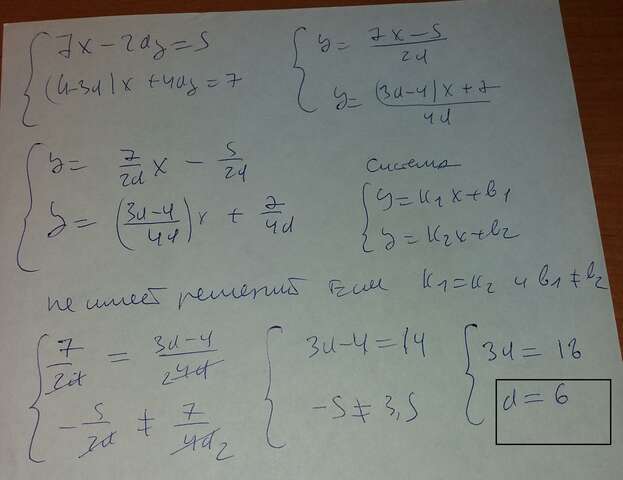 { 7x - 2dy = 5
(4-3d)x + 4dy = 7
{ y = (7x - 5)/(2d)
y = ((3d-4)x + 7)/(4d)
{ y = 7/(2d) x - 5/(2d)
y = ((3d-4)/(4d))x + 7/(4d)
система
{ y = k₁x + b₁
y = k₂x + b₂
не имеет решений если k₁ = k₂ и b₁ ≠ b₂
{ 7/(2d) = (3d-4)/(2 4d)
-5/(2d) ≠ 7/(4d 2)
{ 3d - 4 = 14
-5 ≠ 3,5
{ 3d = 18
d = 6